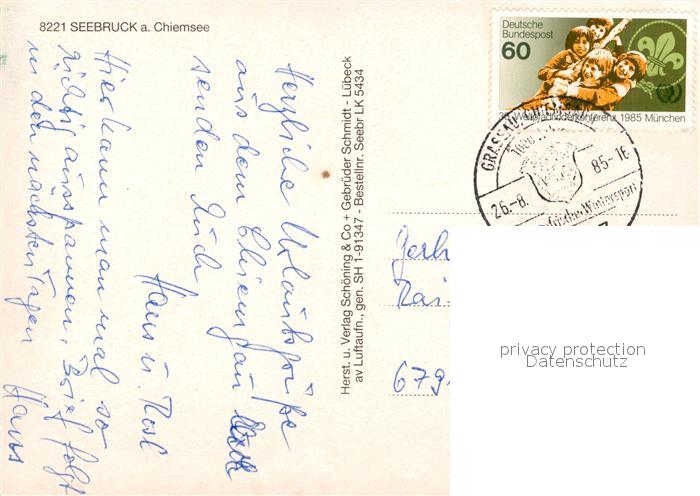 8221 SEEBRUCK a. Chiemsee
Herzliche Urlaubsgrüße
aus dem Chiemgau
senden Euch
Hans u. Rosl
Hier kann man mal so
richtig ausspannen, Brief folgt
in den nächsten Tagen
Hans
Herst. u. Verlag Schöning & Co + Gebrüder Schmidt - Lübeck
av Luftaufn., gen. SH 1-91347 - Bestellnr. Seebr LK 5434
Deutsche
Bundespost
60
30. Weltpfadfinderkonferenz 1985 München
GRASSAU
26.-8. 85-16
Wintersport
Gerh
Rai
679
privacy protection
Datenschutz